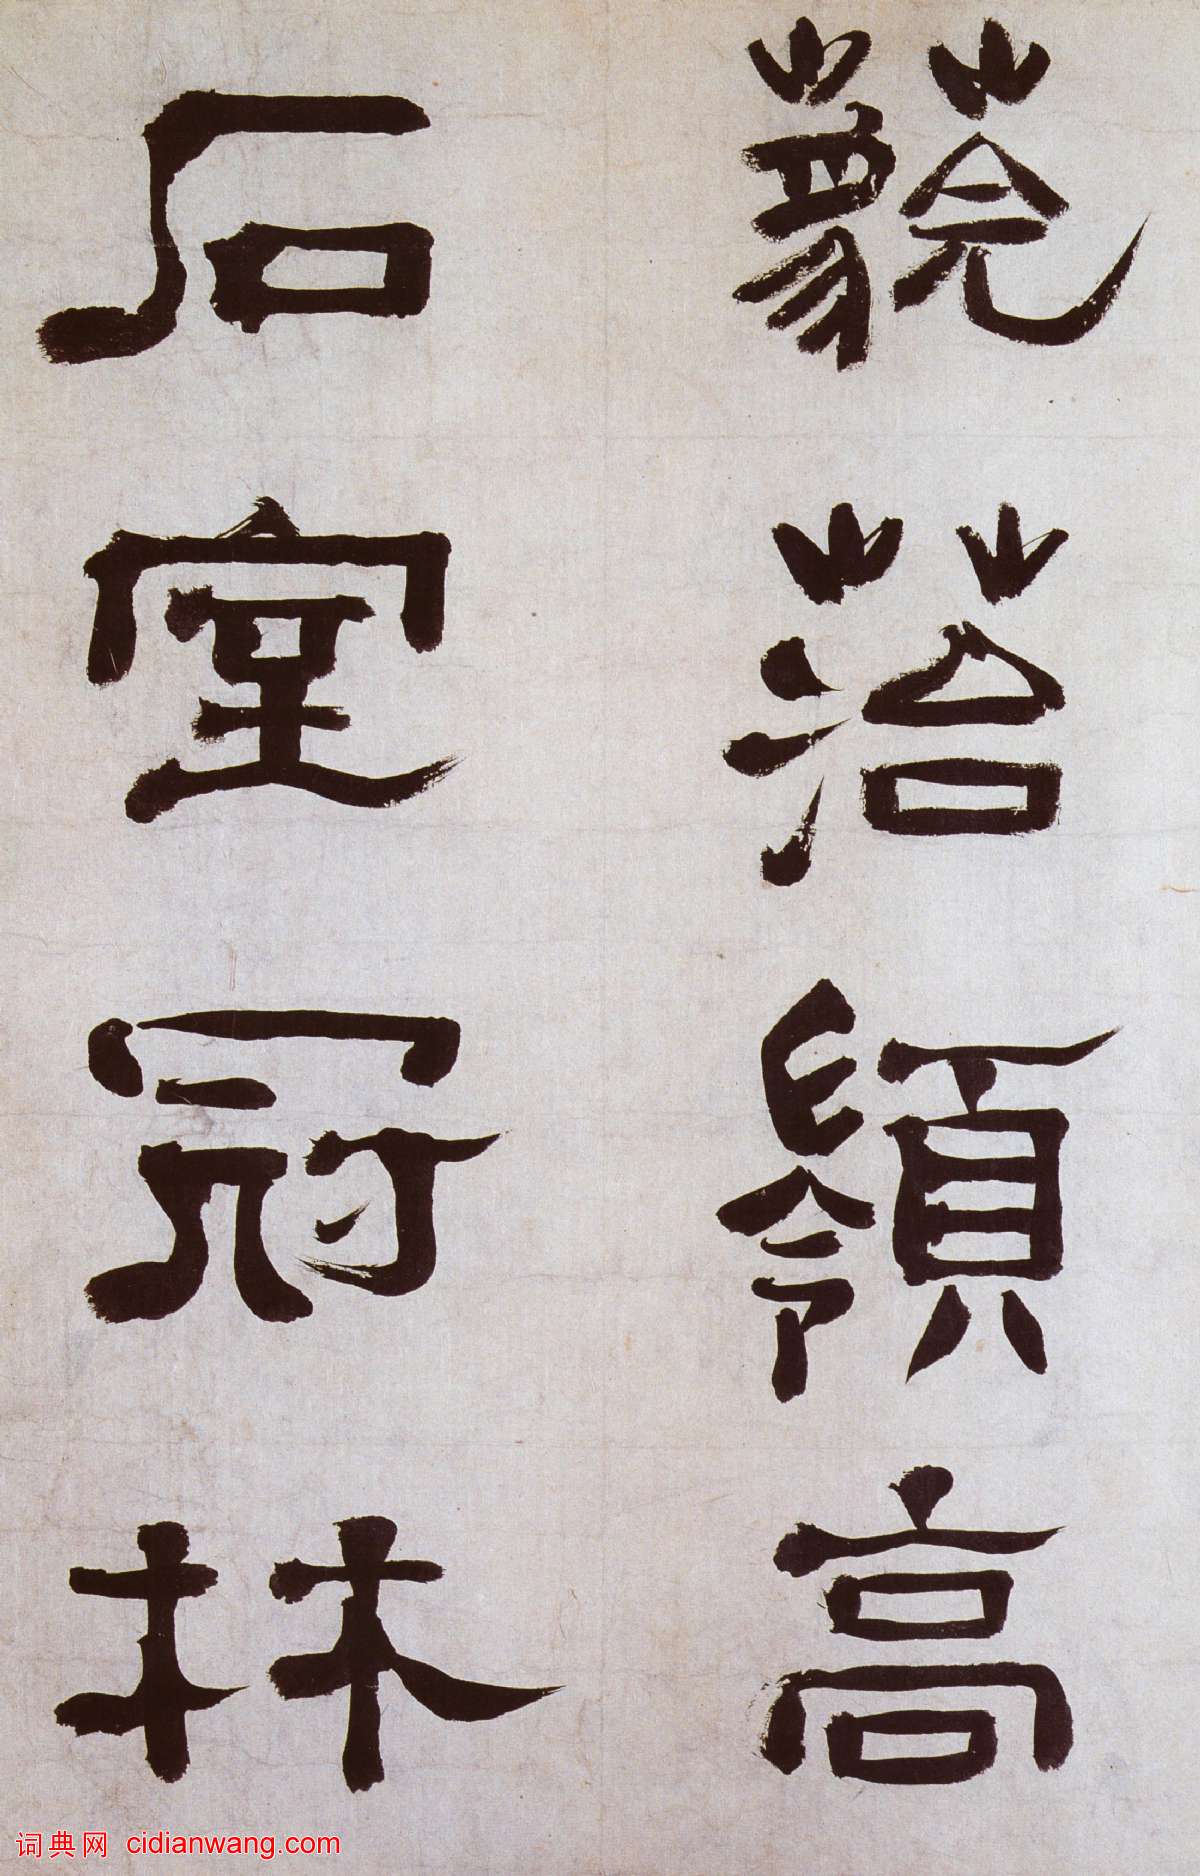 藐菭嶺高
石室冠林
词典网 cidianwang.com